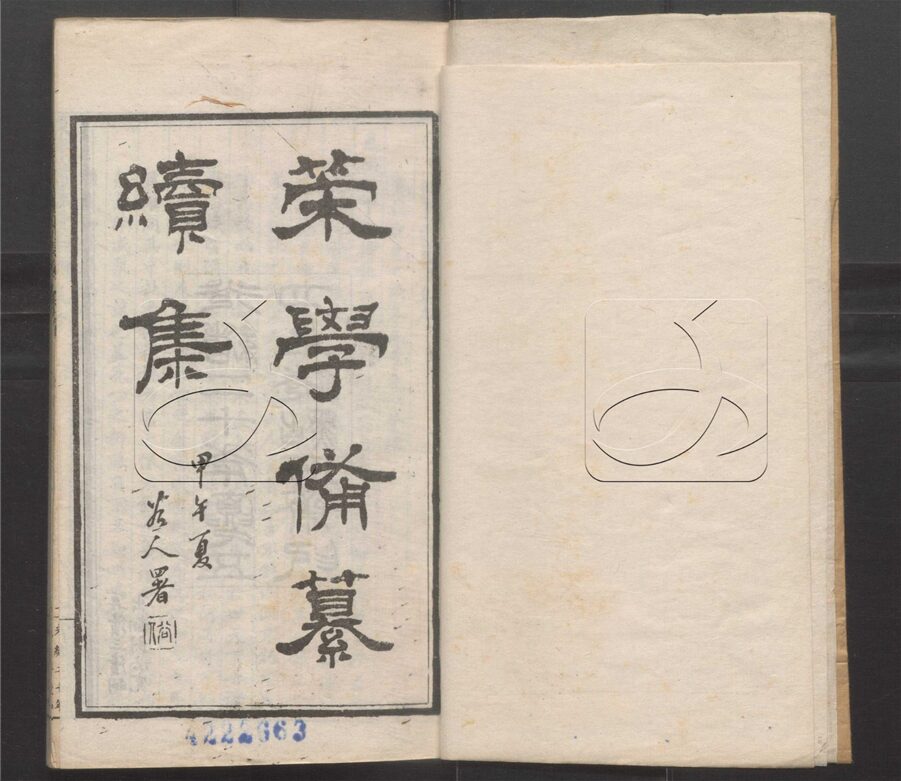 策學備纂
續集
甲午夏
谷人署
4222663